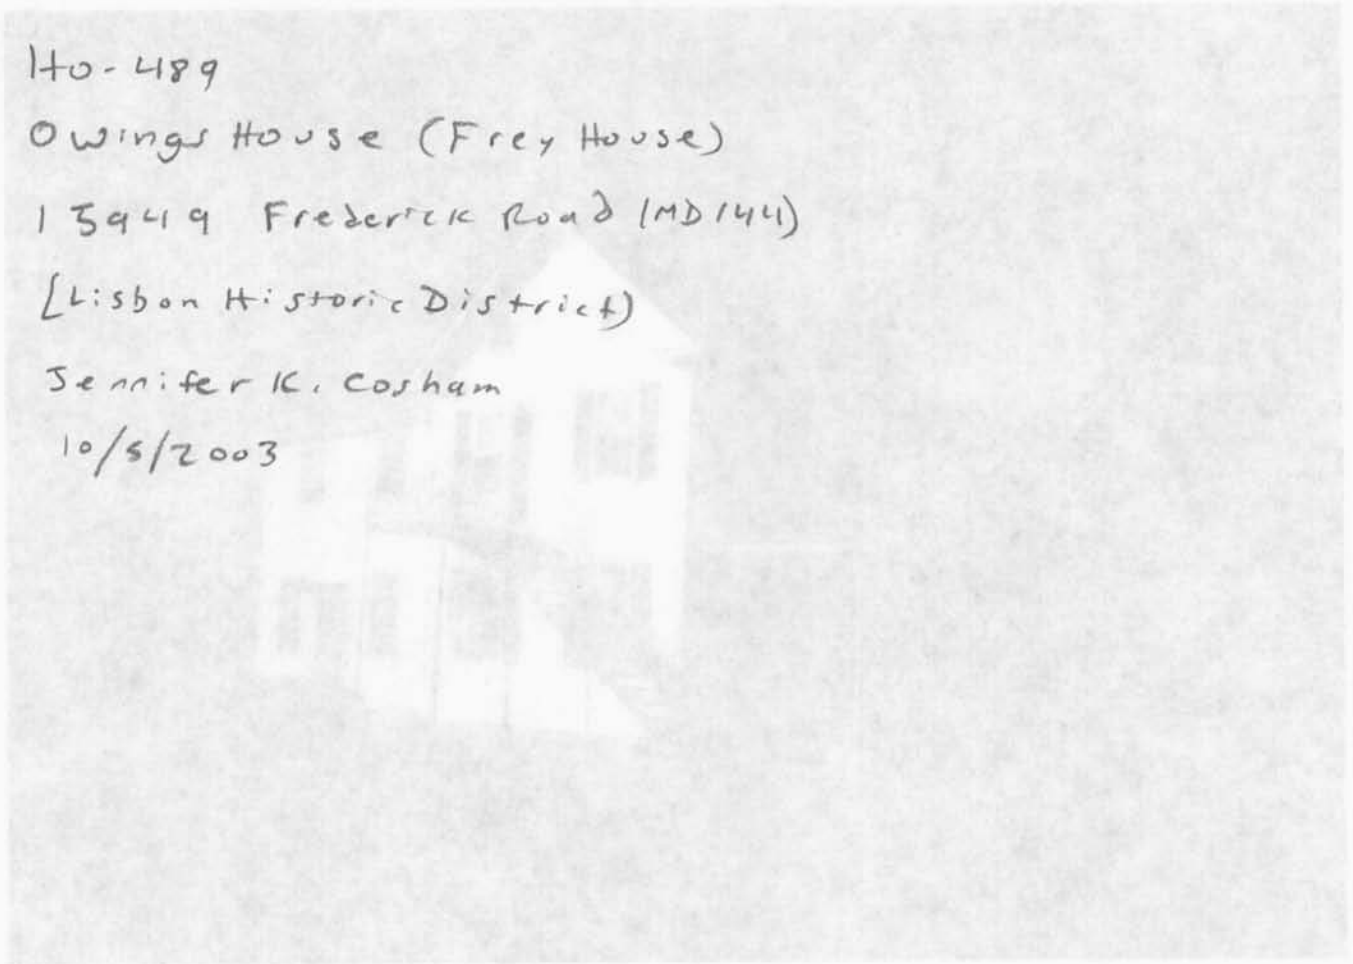 HO-489
Owings House (Frey House)
15949 Frederick Road (MD144)
(Lisbon Historic District)
Jennifer K. Cosham
10/5/2003